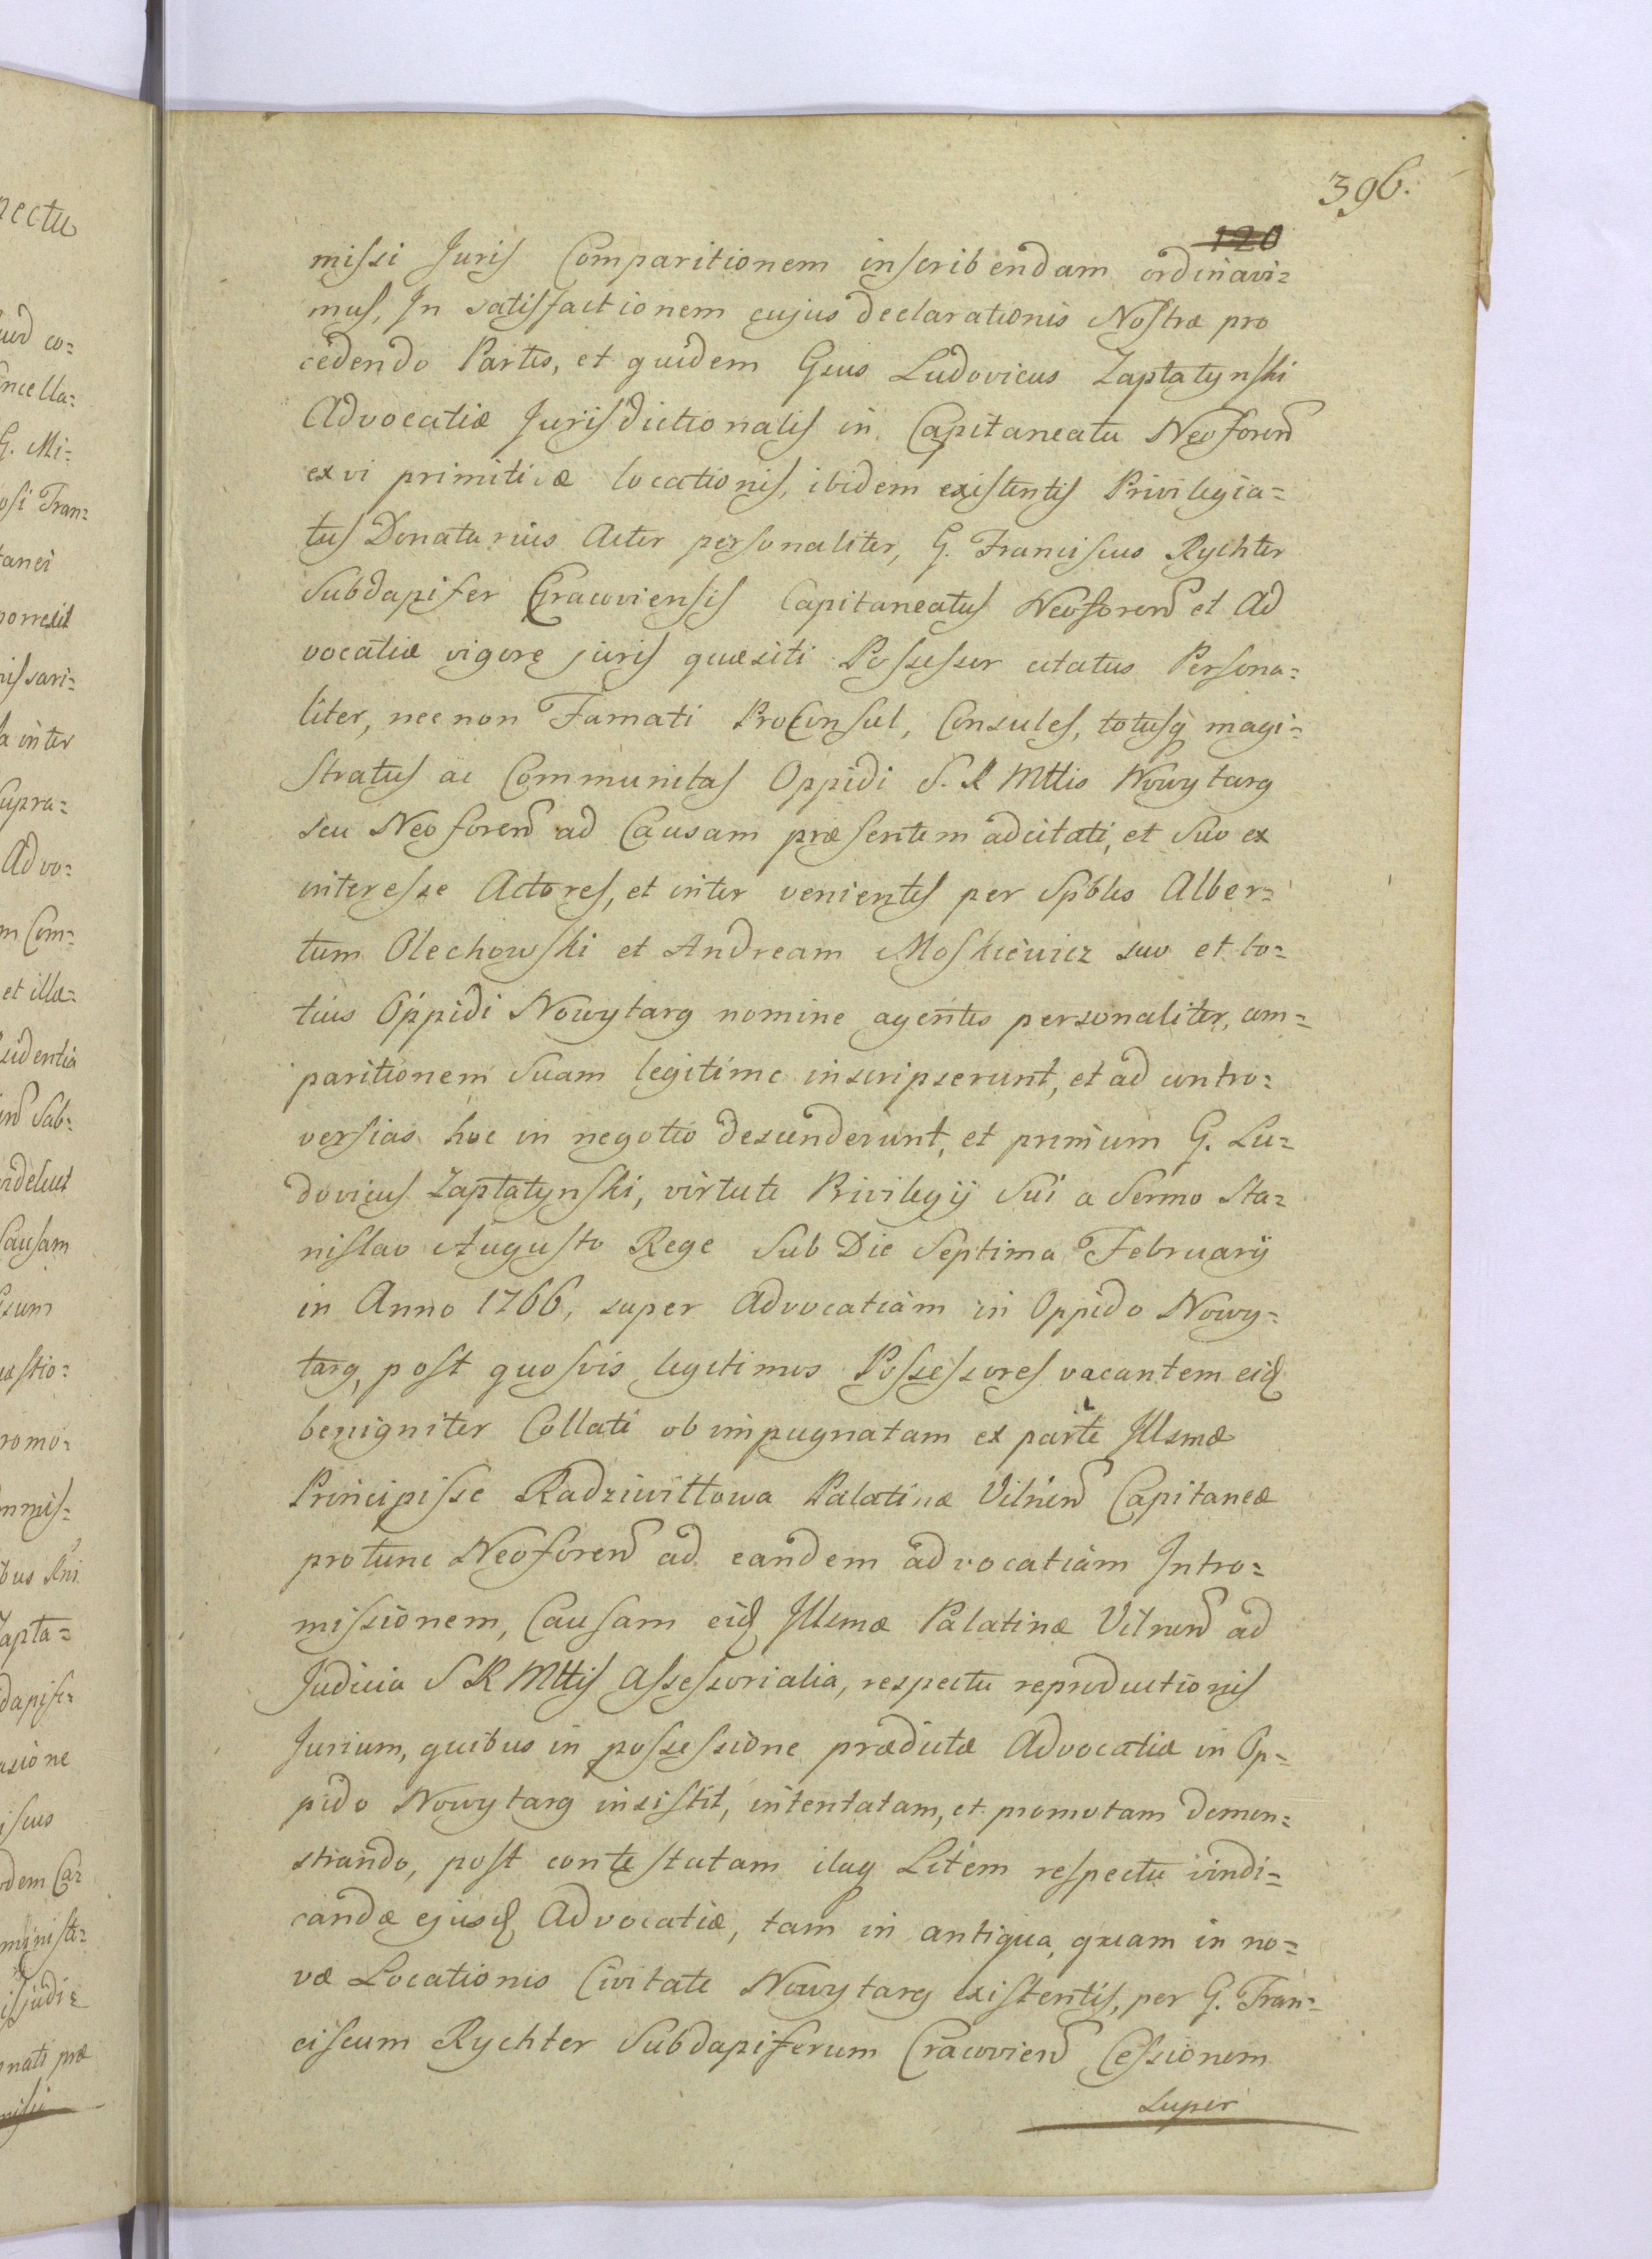 396.
120
missi Juris Comparitionem inscribendam ordinavi=
mus, In satisfactionem cujus declarationis Nostræ pro
cedendo Partes, et quidem Gsus Ludovicus Zaptatynski
Advocatiæ Jurisdictionalis in Capitaneatu Neoforen
ex vi primitivæ locationis, ibidem existentis Privilegia=
tus Donatarius Actor personaliter, G. Franciscus Rychter
Subdapifer Cracoviensis Capitaneatus Neoforen et Ad
vocatiæ vigore juris quæsiti Possessor citatus Persona=
liter, nec non Famati ProConsul, Consules, totusq magi=
stratus ac Communitas Oppidi S. R Mttis Nowytarg
seu Neoforen ad Causam præsentem adcitati, et Suo ex
interesse Actores, et inter venientes per Spbles Alber=
tum Olechowski et Andream Moskiewicz suo et to=
tius Oppidi Nowytarg nomine agentes personaliter, com=
paritionem Suam legitime inscripserunt, et ad contro=
versias hoc in negotio descenderunt, et primum G. Lu=
dovicus Zaptatynski, virtute Privilegij Sui a Sermo Sta=
nislao Augusto Rege Sub Die Septima Februarij
in Anno 1766, super Advocatiam in Oppido Nowy=
targ, post quosvis legitimos Possessores vacantem eid
benigniter Collati ob impugnatam ex parte Jllsmæ
Principisse Radziwiłłowa Palatinæ Vilnen Capitaneæ
protunc Neoforen ad eandem advocatiam Intro=
missionem, Causam eid Jllsmæ Palatinæ Vilnen ad
Judicia S R Mttis Assessorialia, respectu reproductionis
Jurium, quibus in possessione prædictæ Advocatiæ in Op=
pido Nowytarg insistit, intentatam, et promotam demon=
strando, post contestatam itaq Litem respectu vindi=
candæ ejusd Advocatiæ, tam in antiqua, quam in no=
væ Locationis Civitate Nowytarg existentis, per G. Fran=
ciscum Rychter Subdapiferum Cracovien Cessionem
super